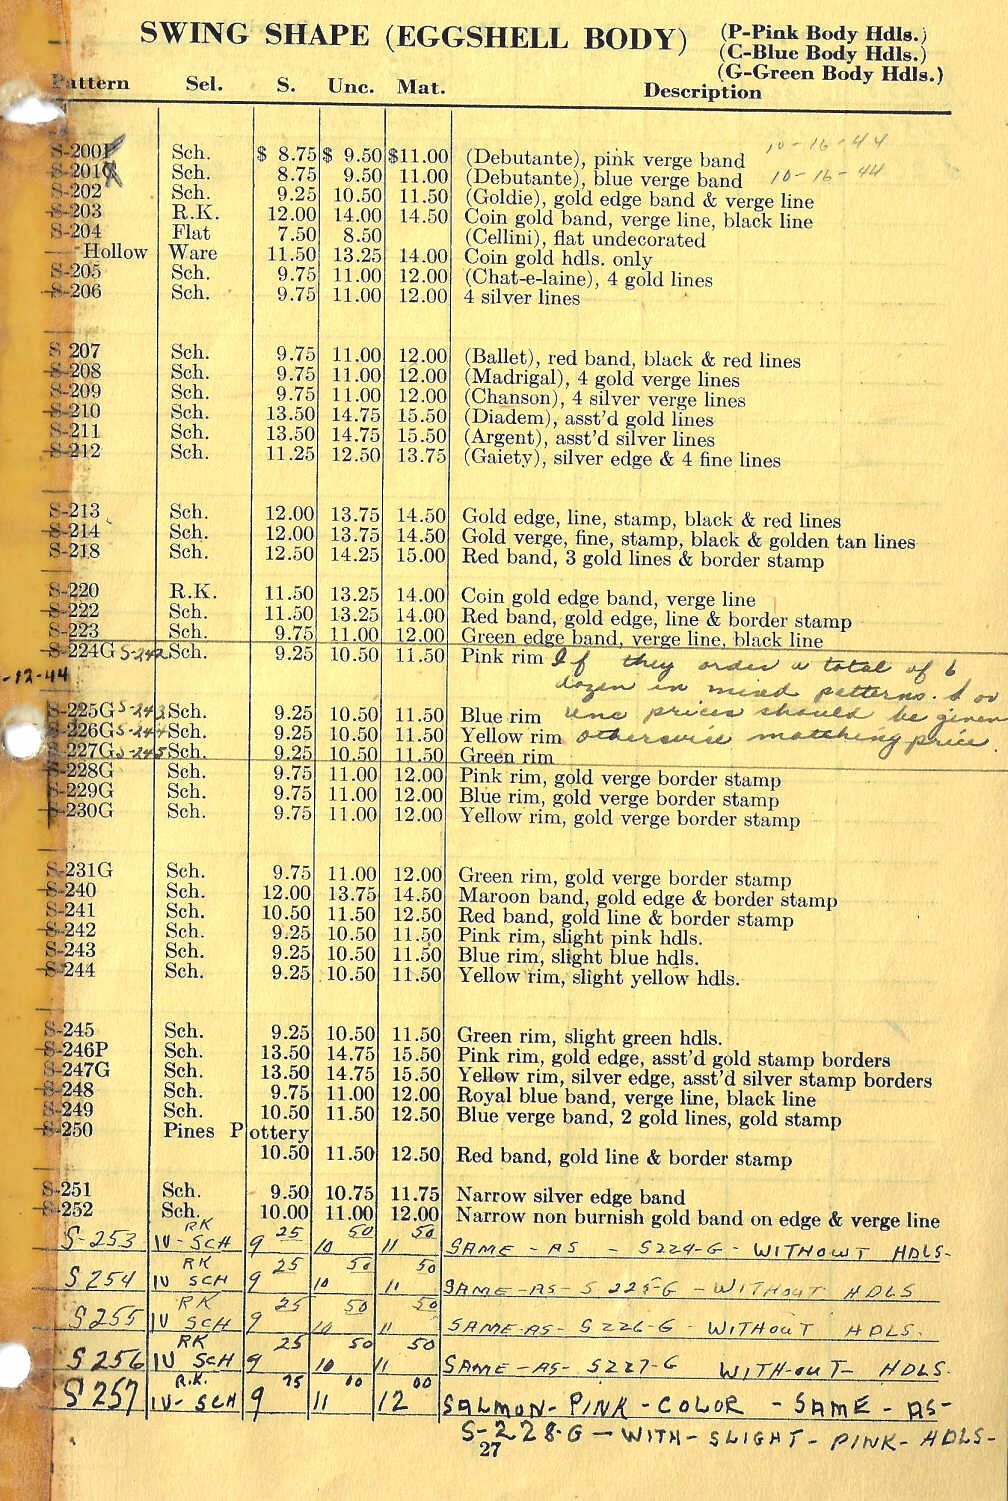 SWING SHAPE (EGGSHELL BODY) (P-Pink Body Hdls.)
(C-Blue Body Hdls.)
(G-Green Body Hdls.)
Pattern Sel. S. Unc. Mat. Description
S-200P Sch. $ 8.75 $ 9.50 $11.00 (Debutante), pink verge band 10-16-44
S-201C Sch. 8.75 9.50 11.00 (Debutante), blue verge band 10-16-44
S-202 Sch. 9.25 10.50 11.50 (Goldie), gold edge band & verge line
S-203 R.K. 12.00 14.00 14.50 Coin gold band, verge line, black line
S-204 Flat 7.50 8.50 (Cellini), flat undecorated
Hollow Ware 11.50 13.25 14.00 Coin gold hdls. only
S-205 Sch. 9.75 11.00 12.00 (Chat-e-laine), 4 gold lines
S-206 Sch. 9.75 11.00 12.00 4 silver lines
S 207 Sch. 9.75 11.00 12.00 (Ballet), red band, black & red lines
S-208 Sch. 9.75 11.00 12.00 (Madrigal), 4 gold verge lines
S-209 Sch. 9.75 11.00 12.00 (Chanson), 4 silver verge lines
S-210 Sch. 13.50 14.75 15.50 (Diadem), asst'd gold lines
S-211 Sch. 13.50 14.75 15.50 (Argent), asst'd silver lines
S-212 Sch. 11.25 12.50 13.75 (Gaiety), silver edge & 4 fine lines
S-213 Sch. 12.00 13.75 14.50 Gold edge, line, stamp, black & red lines
S-214 Sch. 12.00 13.75 14.50 Gold verge, fine, stamp, black & golden tan lines
S-218 Sch. 12.50 14.25 15.00 Red band, 3 gold lines & border stamp
S-220 R.K. 11.50 13.25 14.00 Coin gold edge band, verge line
S-222 Sch. 11.50 13.25 14.00 Red band, gold edge, line & border stamp
S-223 Sch. 9.75 11.00 12.00 Green edge band, verge line, black line
S-224G S-242 Sch. 9.25 10.50 11.50 Pink rim If they order a total of 6
-12-44 dozen in mixed patterns. S or
S-225G S-243 Sch. 9.25 10.50 11.50 Blue rim unc prices should be given
S-226G S-244 Sch. 9.25 10.50 11.50 Yellow rim otherwise matching price.
S-227G S-245 Sch. 9.25 10.50 11.50 Green rim
S-228G Sch. 9.75 11.00 12.00 Pink rim, gold verge border stamp
S-229G Sch. 9.75 11.00 12.00 Blue rim, gold verge border stamp
S-230G Sch. 9.75 11.00 12.00 Yellow rim, gold verge border stamp
S-231G Sch. 9.75 11.00 12.00 Green rim, gold verge border stamp
S-240 Sch. 12.00 13.75 14.50 Maroon band, gold edge & border stamp
S-241 Sch. 10.50 11.50 12.50 Red band, gold line & border stamp
S-242 Sch. 9.25 10.50 11.50 Pink rim, slight pink hdls.
S-243 Sch. 9.25 10.50 11.50 Blue rim, slight blue hdls.
S-244 Sch. 9.25 10.50 11.50 Yellow rim, slight yellow hdls.
S-245 Sch. 9.25 10.50 11.50 Green rim, slight green hdls.
S-246P Sch. 13.50 14.75 15.50 Pink rim, gold edge, asst'd gold stamp borders
S-247G Sch. 13.50 14.75 15.50 Yellow rim, silver edge, asst'd silver stamp borders
S-248 Sch. 9.75 11.00 12.00 Royal blue band, verge line, black line
S-249 Sch. 10.50 11.50 12.50 Blue verge band, 2 gold lines, gold stamp
S-250 Pines Pottery
10.50 11.50 12.50 Red band, gold line & border stamp
S-251 Sch. 9.50 10.75 11.75 Narrow silver edge band
S-252 Sch. 10.00 11.00 12.00 Narrow non burnish gold band on edge & verge line
S-253 RK IU-SCH 9 25 10 50 11 50 SAME - AS - S224-G - WITHOUT HDLS-
S254 RK IU SCH 9 25 10 50 11 50 SAME-AS- S 225-G - WITHOUT HDLS
S255 RK IU SCH 9 25 10 50 11 50 SAME-AS- S226-G - WITHOUT HDLS.
S256 RK IU SCH 9 25 10 50 11 50 SAME-AS- S227-G WITH-OUT- HDLS.
S257 R.K. IU-SCH 9 75 11 00 12 00 SALMON-PINK-COLOR - SAME-AS-
S-228-G - WITH-SLIGHT-PINK-HDLS-
27